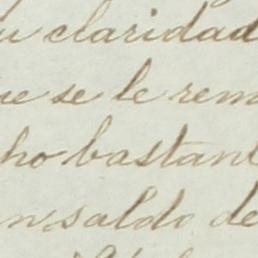 su claridad
ue se le rem
ho bastant
un saldo de